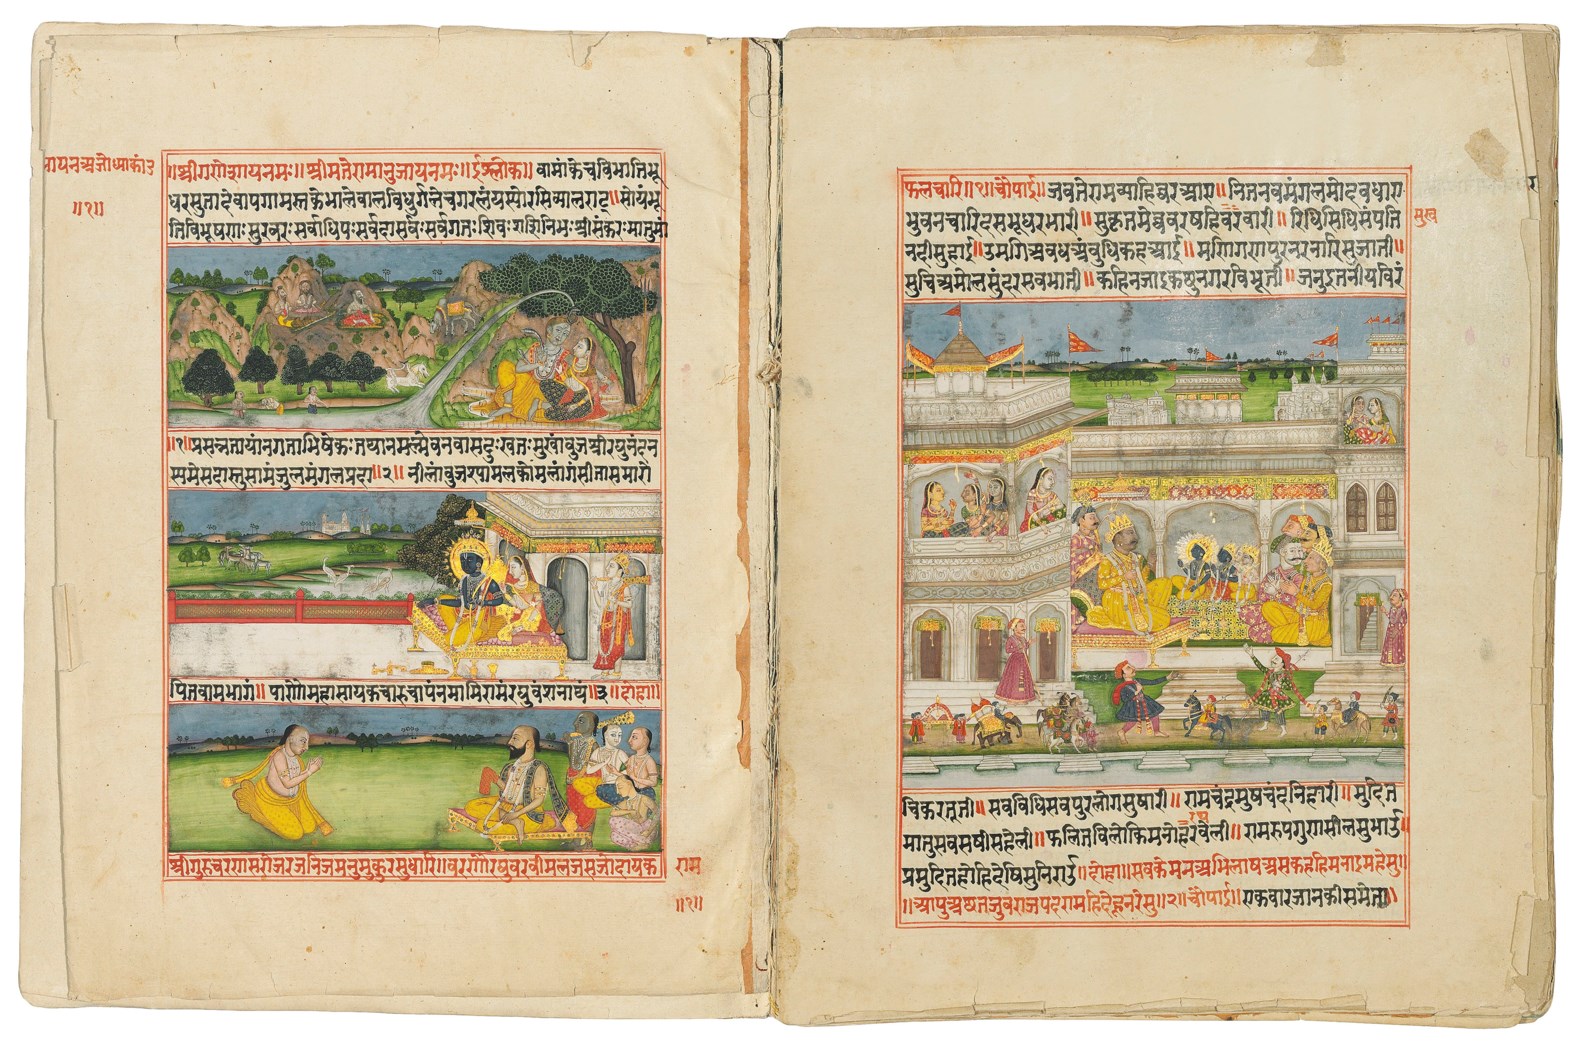 रामायनअजोध्याकां३
॥१॥
॥श्रीगणेशायनमः॥श्रीमतेरामानुजायनमः॥ईश्लोक॥ वामांकेचविभातिभू
धरसुतादेवापगामस्तकेभालेवालविधुर्गलेचगरलंयस्योरसिव्यालराट्॥सोयंभू
तिविभूषणःसुरवरःसर्वाधिपःसर्वदासर्वःसर्वगतःशिवःशशिनिभःश्रीसंकरःमातुमां
॥१॥प्रसन्नतायांनगताभिषेकःतथानमम्लेवनवासदुःखतःमुखांवुजश्रीरघुनंदन
समेसदास्तुसामंजुलमंगलप्रदा॥२॥ नीलांवुजश्यामलकोमलांगंसीतासमारो
पितवामभागं॥ पाणौमहासायकचारुचापंनमामिरामंरघुवंशनाथं॥३॥दोहा॥
श्रीगुरुचरणसरोजरजनिजमनमुकुरसुधारि॥वरणौरघुवरवीमलजसजोदायक
राम
॥१॥
फलचारि॥१॥चौपाई॥जवतेरामव्याहिघरआए॥नितनवमंगलमोदवधाए
भुवनचारिदसभूधरभारी॥सुकृतमेघवरषहिवरवारी॥रिधिसिधिसंपति
मुख
नदीसुहाई॥उमगिअवधअंवुधिकहआई॥मणिगणपुरनरनारिसुजाती॥
सुचिअमोलसुंदरसवभाती॥कहिनजाइकछुनगरविभूती॥जनुइतनीयविरं
चिकरतूती॥सवविधिसवपुरलोगसुषारी॥रामचंद्रमुषचंदनिहारी॥मुदित
मातुसवसषीसहेली॥फलितविलोकिमनोरथवेली॥रामरुपगुणसीलसुभाई॥
प्रमुदितहोहिदेषिसुनिराई॥दोहा॥सवकेमनअभिलाषअसकहहिमनाइमहेसु॥
॥आपुअछतजुवराजपदरामहिदेहूनरेसु॥२॥चौपाई॥एकवारजानकीसमेता॥